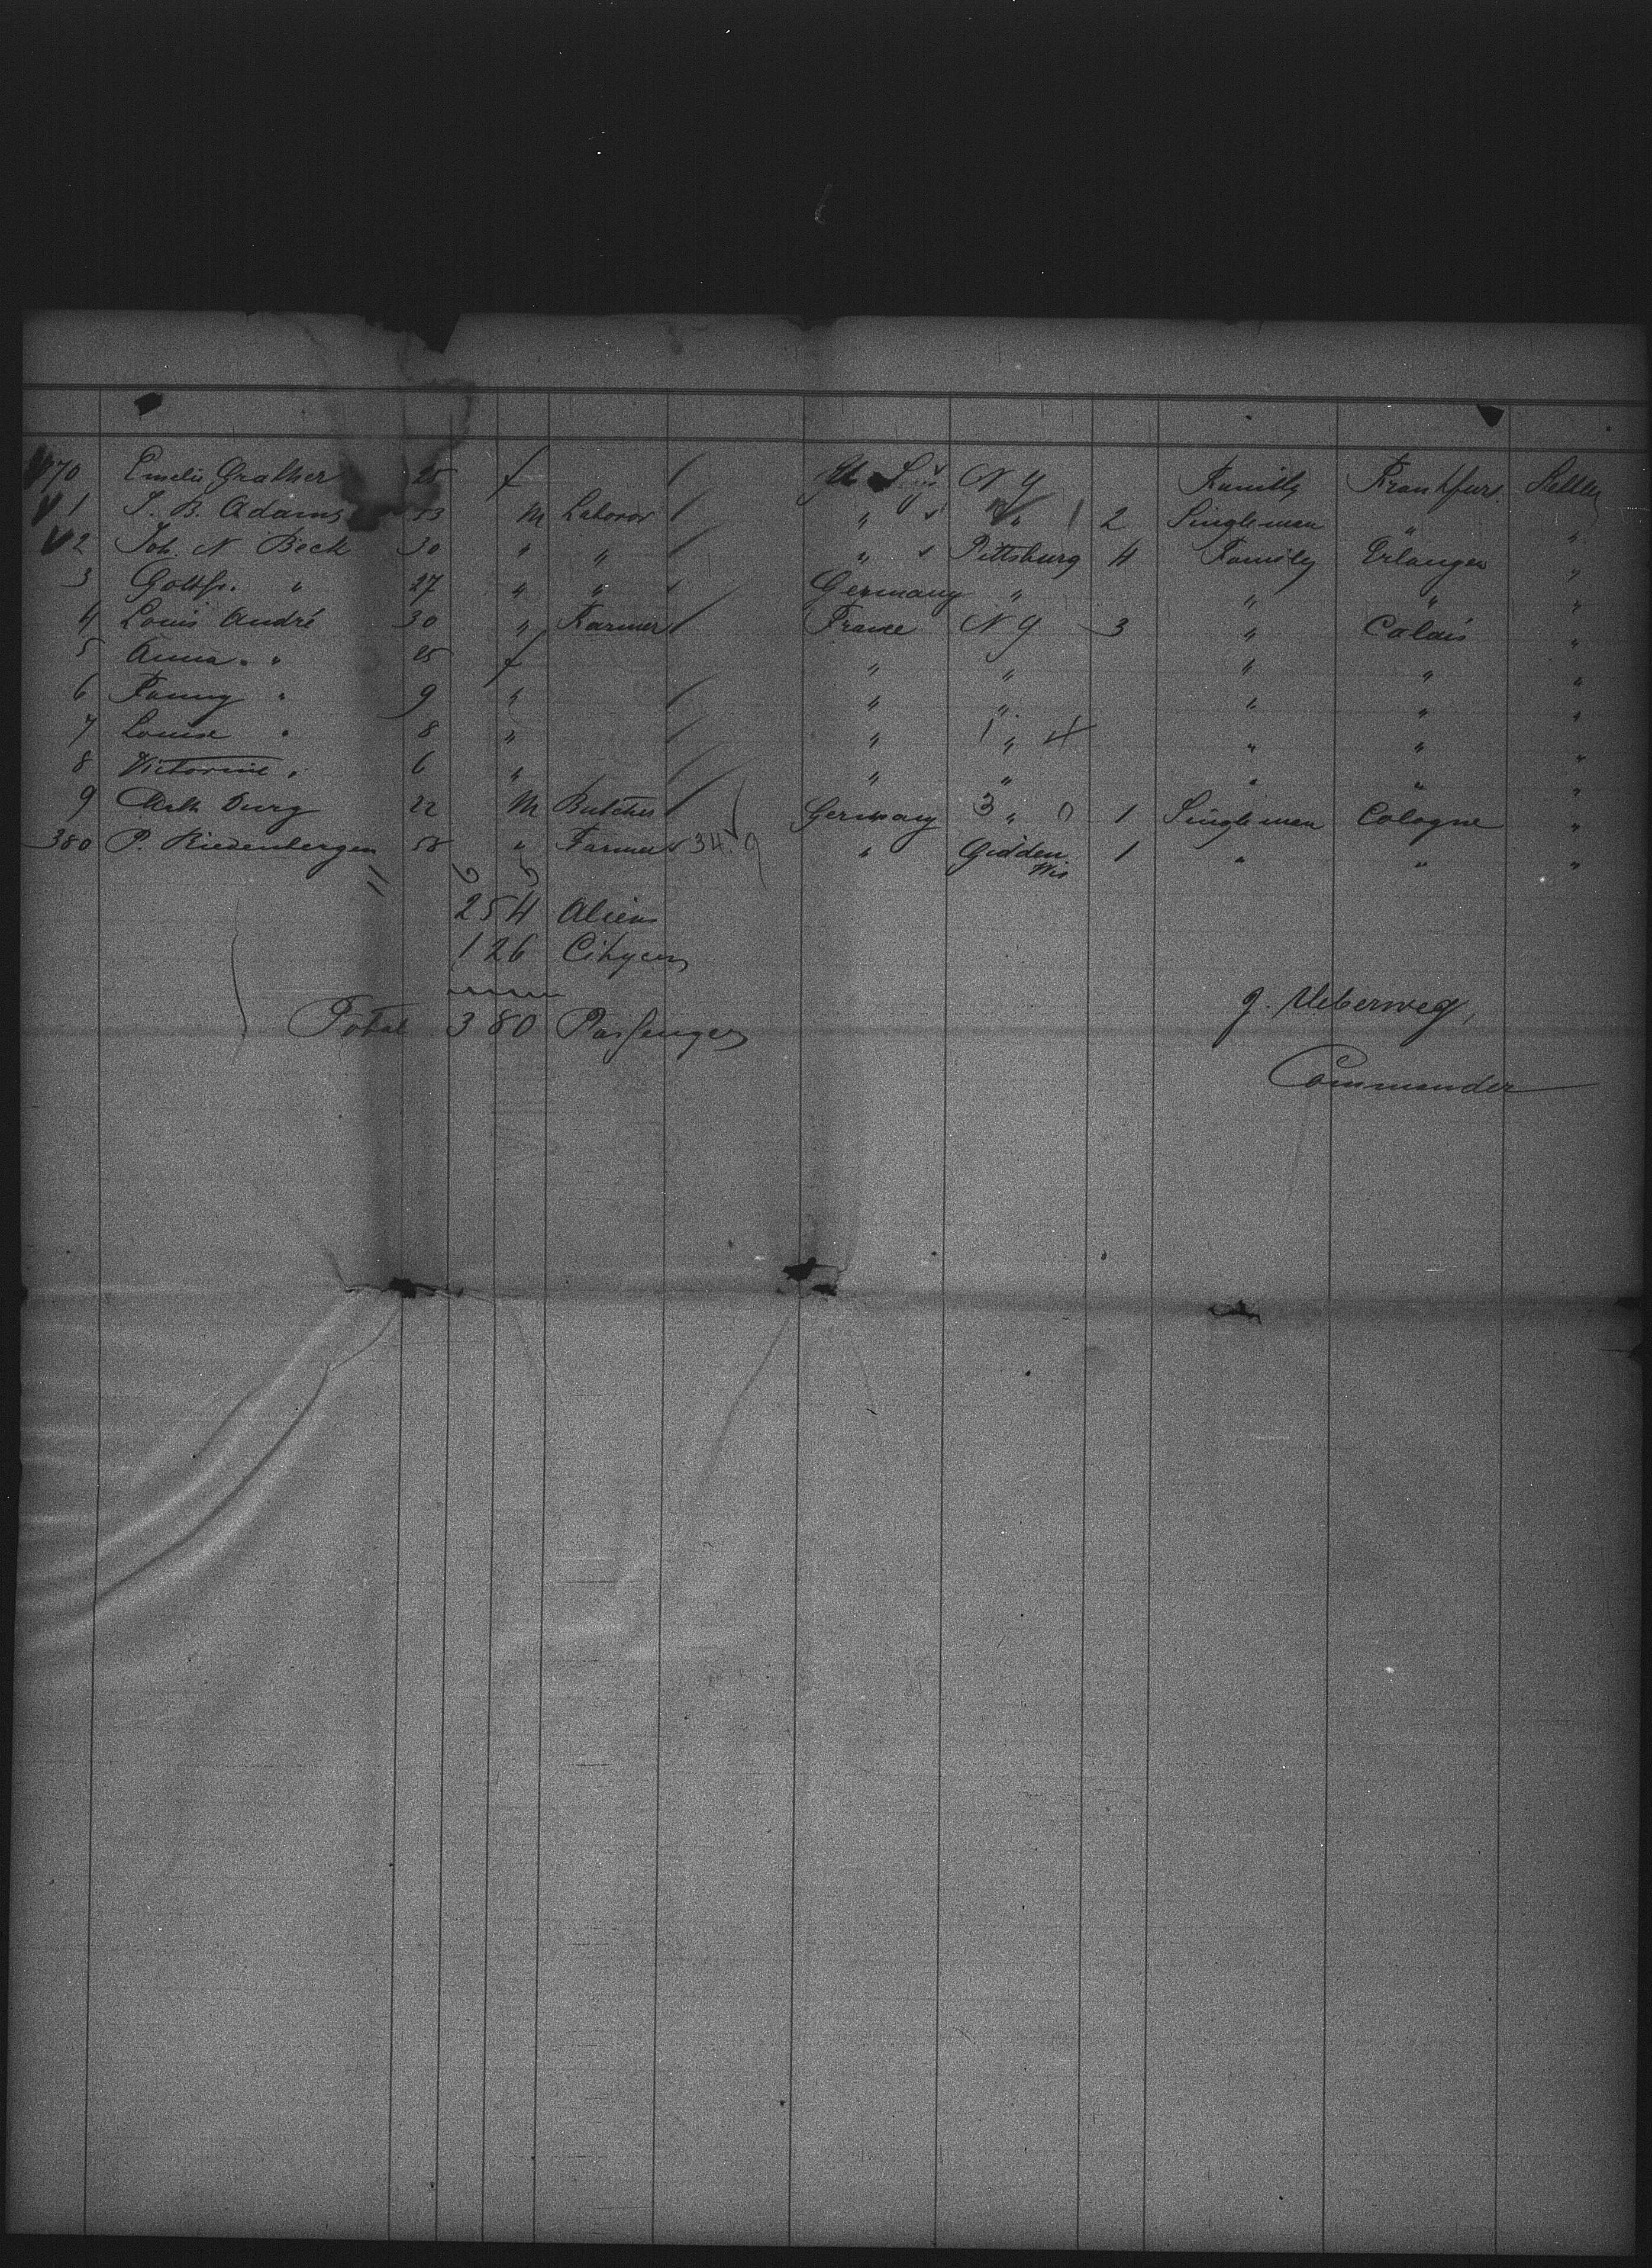 370 Emelie Grather 25 f U. S. N Y Family Frankfurt Settler
1 J. B. Adams 53 M Laboror " " 1 2 Singleman " "
2 Joh. N. Beck 30 " " " Pittsburg 4 Family Erlangen "
3 Gottfr. " 27 " " Germany " " " "
4 Louis André 30 " Farmer France N Y 3 " Calais "
5 Anna " 25 f " " " " "
6 Fanny " 9 " " " " " "
7 Louise " 8 " " 1 " 4 " " "
8 Victorine " 6 " " " " " "
9 Durg 22 M Butcher Germany 3 " 0 1 Singleman Cologne "
380 P. Riedenbergen 58 " Farmer 34.9 " Gidden Wis 1 " " "
6 5
254 Aliens
126 Cityens
Total 380 Passengers
J. Ueberweg,
Commander